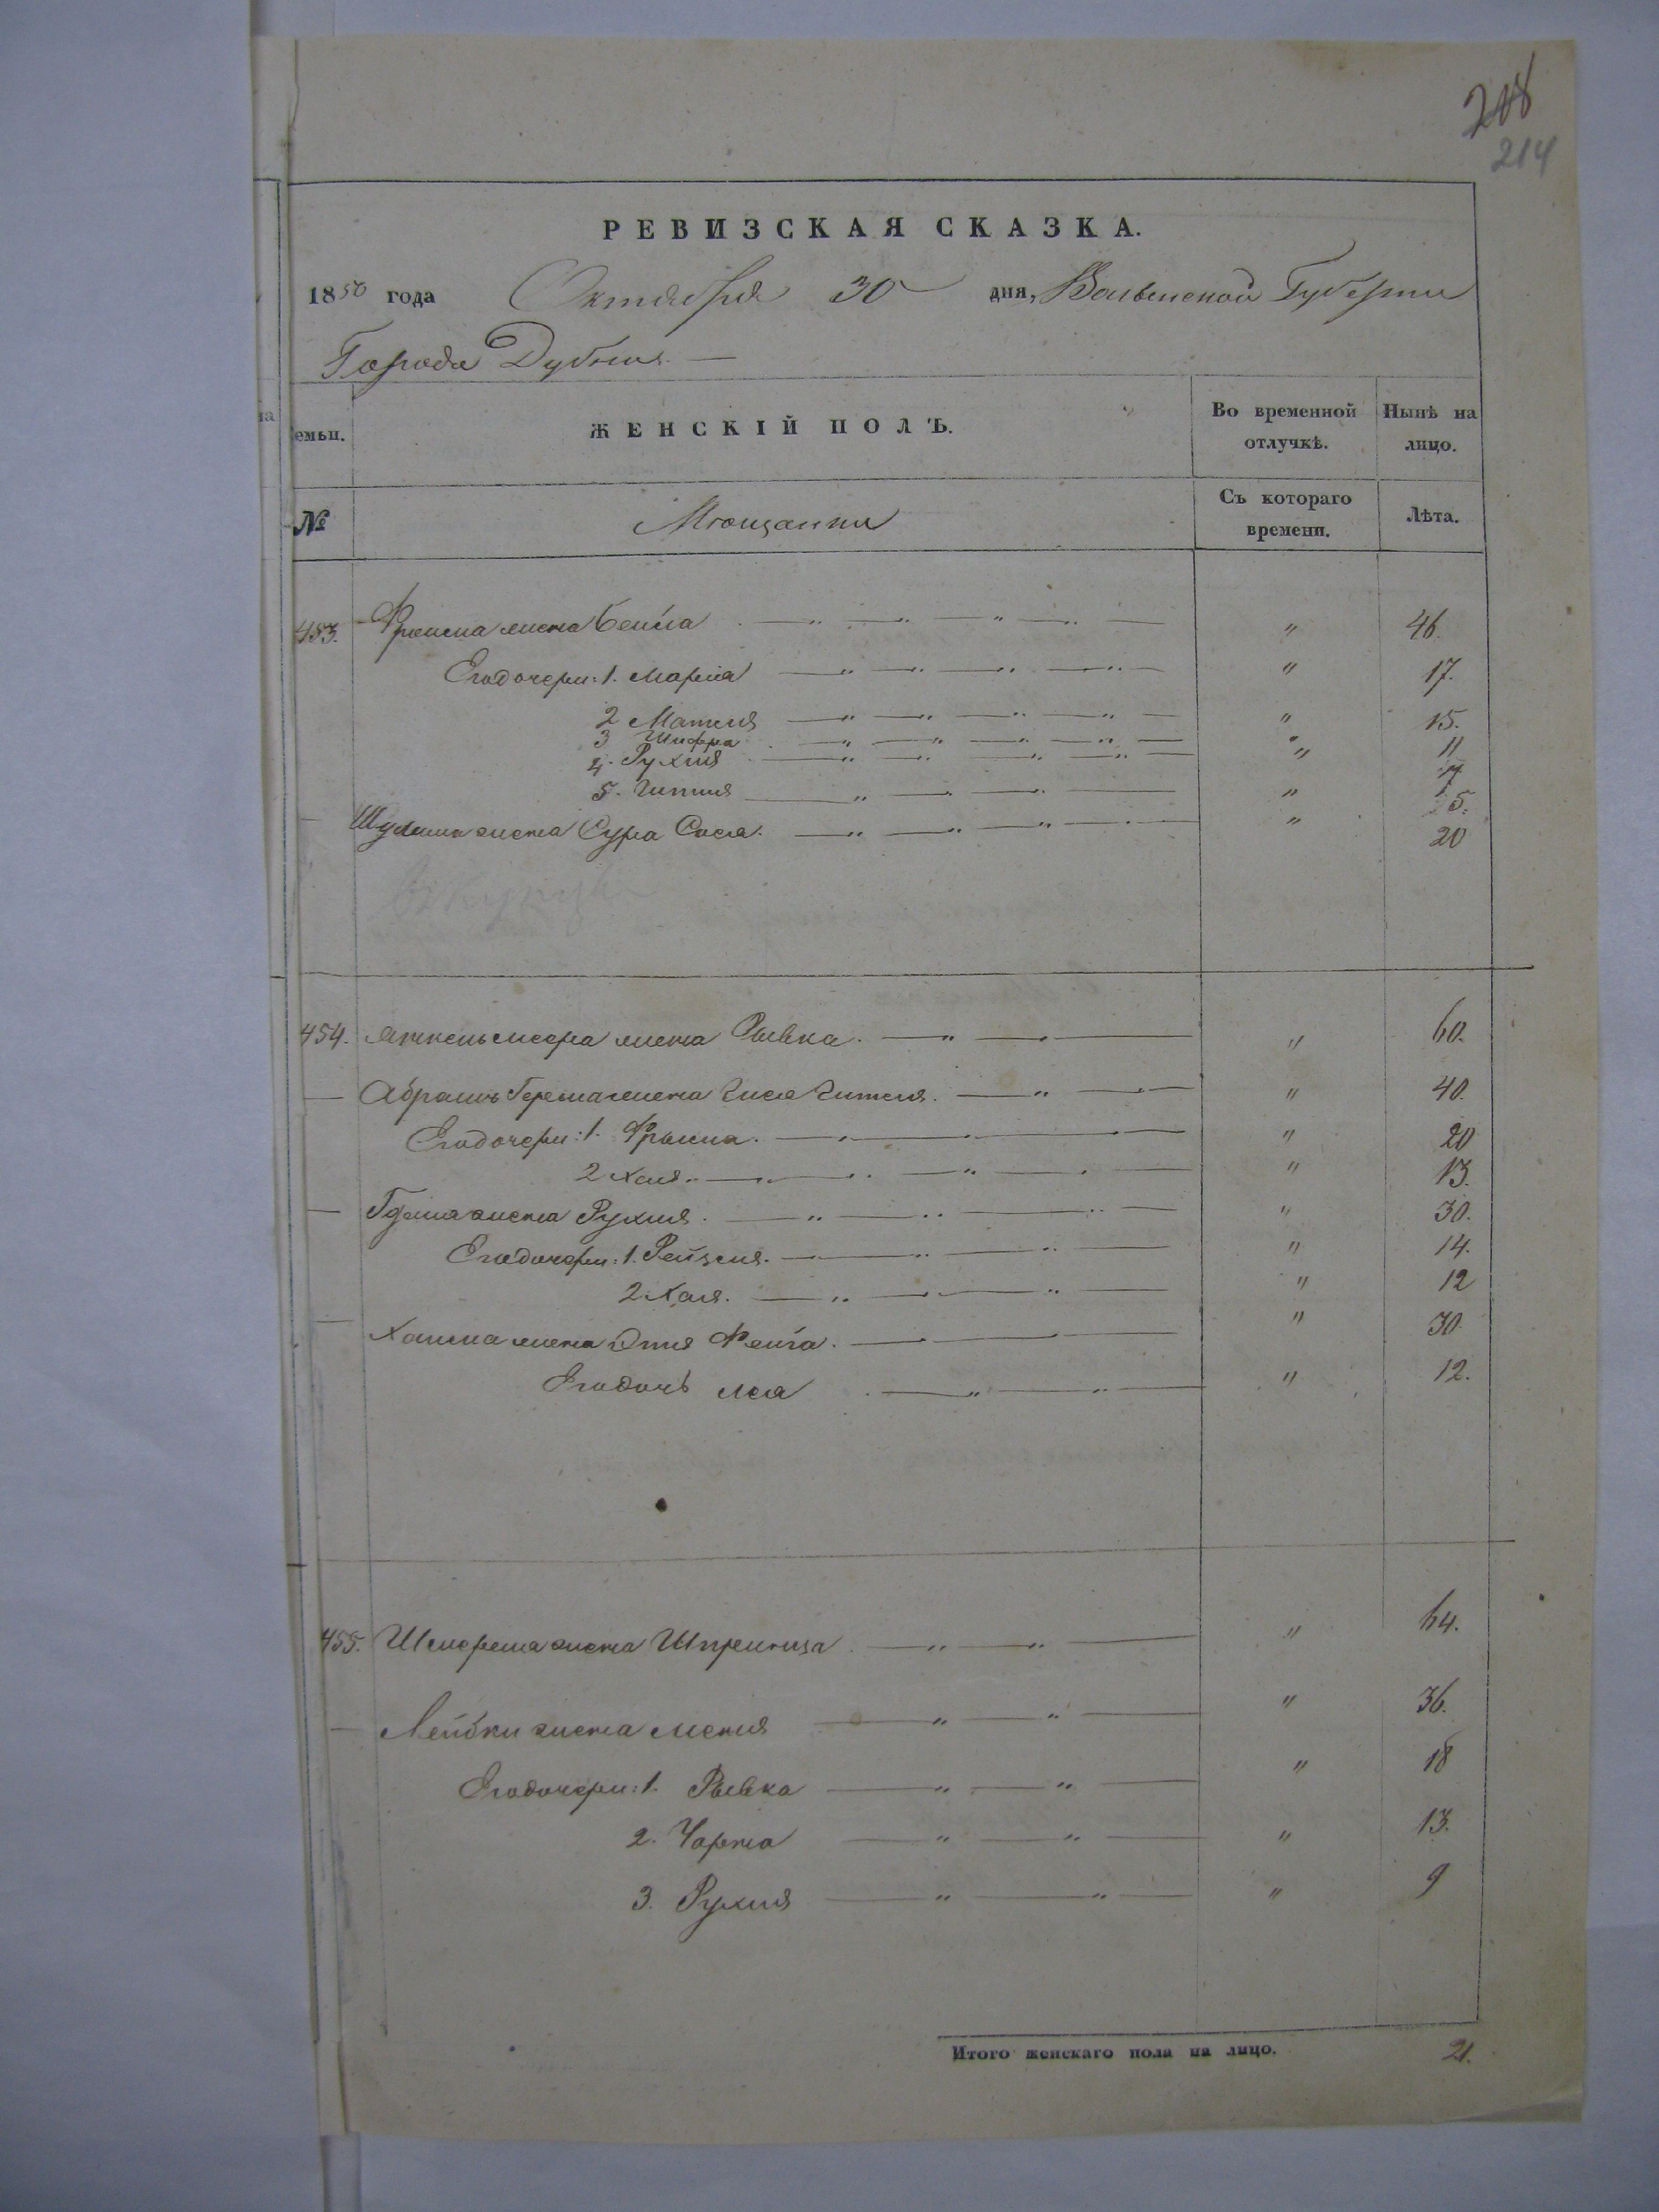 208
214
РЕВИЗСКАЯ СКАЗКА.
1850 года Октября 30 дня, Волынской Губернии
Города Дубна.
емьи. ЖЕНСКІЙ ПОЛЪ. Во временной отлучкѣ. Нынѣ на лицо.
№ Мѣщанки Съ котораго времени. Лѣта.
453. жена Бейла " 46.
Его дочери: 1. Мария " 17.
2 Матля " 15.
3 Шифра " 11
4. Рухля " 7
5. Гитля " 5.
жена Сура Сося. " 20
454. жена Рывка. " 60.
Абрамъ Герша жена Гися Гитля. " 40.
Его дочери: 1. Фрыма. " 20
2 Хая. " 13.
жена Рухля. " 30.
Его дочери: 1. Рейзля. " 14.
2 Хая. " 12
Хаима жена Этля Фейга. " 30.
Его дочь Лея " 12.
455. жена Шпринца " 64.
Лейбки жена " 36.
Его дочери: 1. Рывка " 18
2. Чарна " 13.
3. Рухля " 9
Итого женскаго пола на лицо. 21.